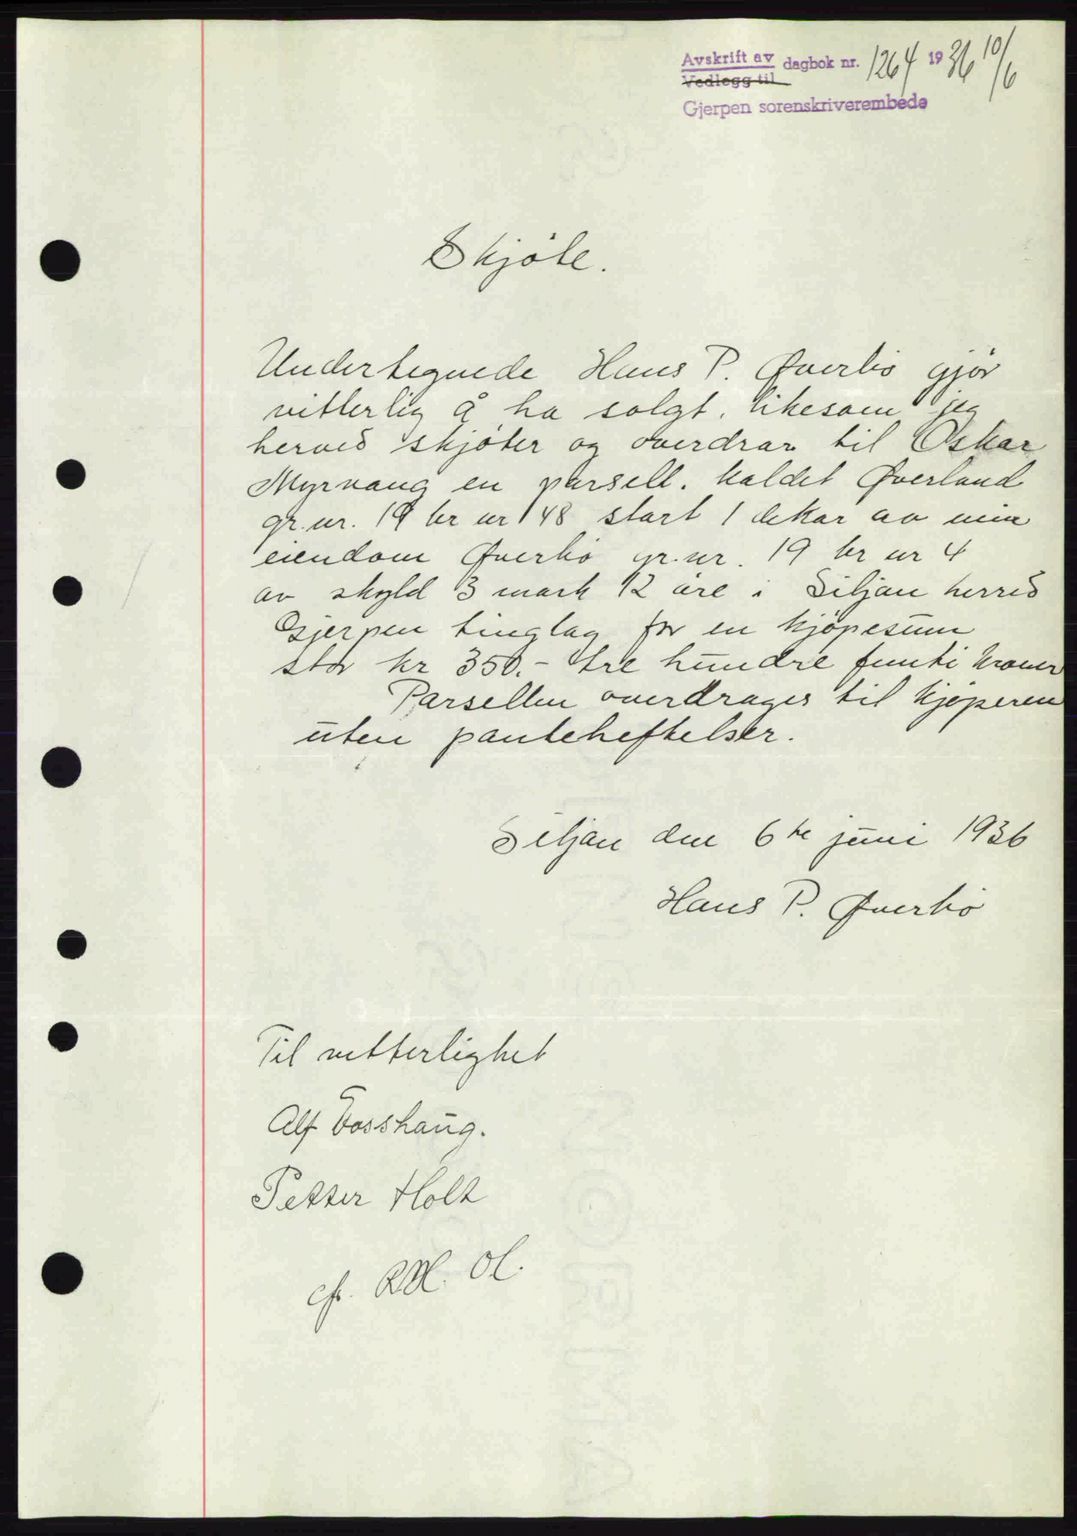 Avskrift av dagbok nr. 1264 1936 10/6
Vedlegg til
Gjerpen sorenskriverembede
Skjöte.
Undertegnede Hans P. Øverbö gjör
vitterlig å ha solgt, likesom jeg
herved skjöter og overdrar til Oskar
Myrvang en parsell. kaldet Øverland
gr. nr. 19 br nr 48 stort 1 dekar av min
eiendom Øverbö gr. nr. 19 br nr 4
av skyld 3 mark 12 öre i Siljan herred
Gjerpen tinglag for en kjöpesum
stor kr 350.- tre hundre femti kroner
Parsellen overdrages til kjöperen
uten panteheftelser.
Siljan den 6te juni 1936
Hans P. Øverbö
Til vitterlighet
Alf Vosshaug.
Petter Holt
NORMA